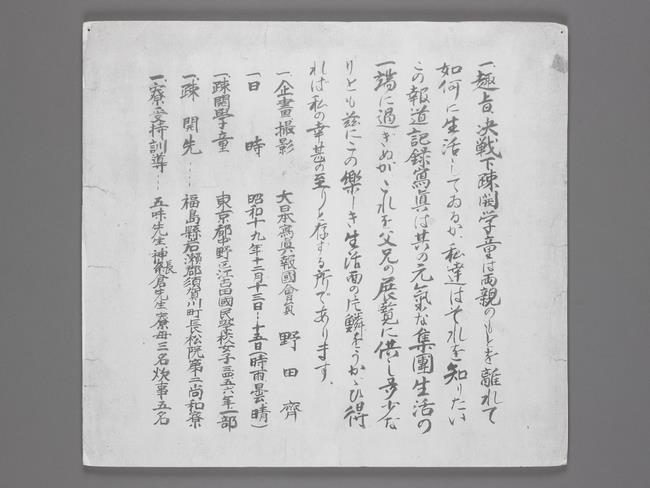 一、趣旨 決戦下疎開学童は両親のもとを離れて
如何に生活してゐるか、私達はそれを知りたい
この報道記録寫眞は其の元氣な集團生活の
一端に過ぎぬがこれを父兄の展覧に供し多少な
りとも茲にこの樂しき生活面の片鱗をうかゞひ得
れば私の幸甚の至りと存する所であります。
一、企畫撮影 大日本寫眞報國會員 野田齊
一、日時 昭和十九年十二月十三日―十五日(時雨曇晴)
一、疎開學童 東京都中野區江古田國民學校女子三四五六年一部
一、疎開先…… 福島縣岩瀬郡須賀川町長松院第二尚和寮
一、寮受持訓導… 五味先生 寮長 倉先生 寮母三名炊事五名